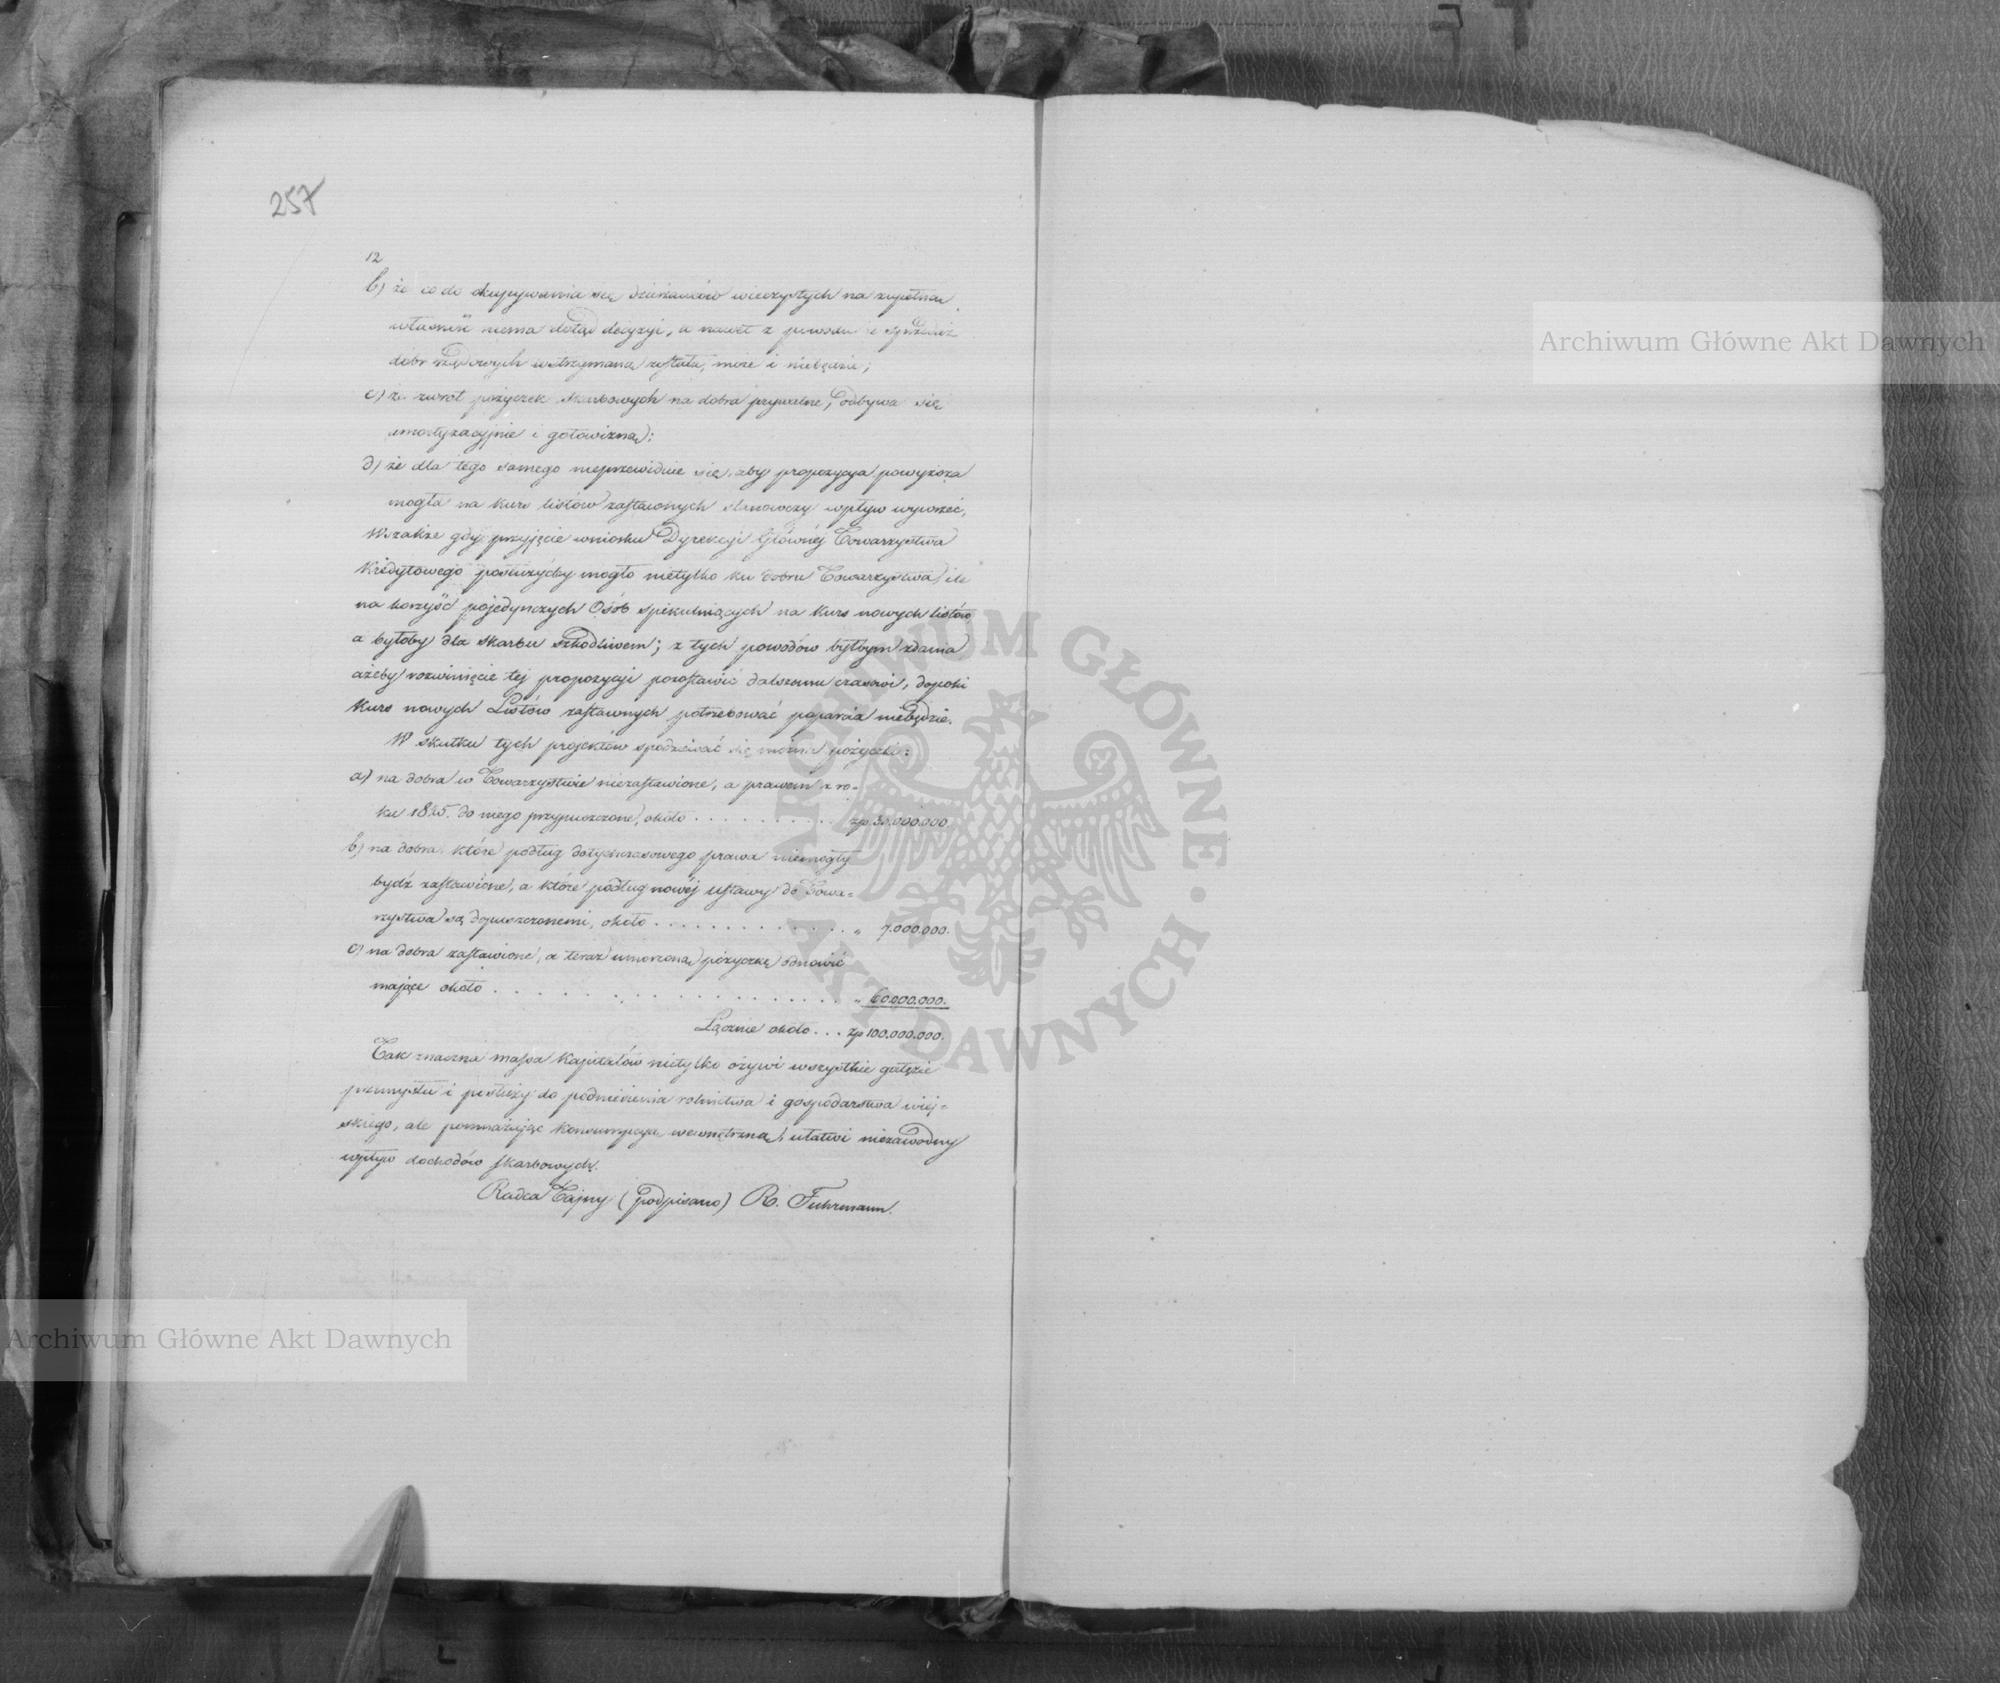 257
12
b) że co do okupywania się dzierżawców wieczystych na zupełną
własność niema dotąd decyzyi, a nawet z powodu że sprzedaż
dóbr rządowych wstrzymaną została, może i niebędzie;
c) że zwrot pożyczek skarbowych na dobra prywatne, odbywa się
amortyzacyjnie i gotowizną;
d) że dla tego samego nieprzewiduie się, aby propozycya powyższa
mogła na kurs listów zastawnych stanowczy wpływ wywrzeć,
Wszakże gdy przyjęcie wniosku Dyrekcyi Głównej Towarzystwa
Kredytowego posłużyćby mogło nietylko ku dobru Towarzystwa, ile
na korzyść pojedynczych Osób spekulujących na kurs nowych listów
a byłoby dla skarbu szkodliwem; z tych powodów byłbym zdania
ażeby rozwinięcie tej propozycyi pozostawić dalszemu czasowi, dopóki
kurs nowych Listów zastawnych potrzebować poparcia niebędzie.
W skutku tych projektów spodziewać się można pożyczki:
a) na dobra w Towarzystwie niezastawione, a prawem z ro=
ku 1825. do niego przypuszczone, około . . . . . . . . . . zp 33.000.000.
b) na dobra, które podług dotychczasowego prawa niemogły
bydź zastawione, a które podług nowéj Ustawy do Towa=
rzystwa są dopuszczonemi, około . . . . . . . . . . . . . „ 7.000.000.
c) na dobra zastawione, a teraz umorzoną pożyczkę odnowić
mające około . . . . . . . . . . . . . . . . . . „ 60.000.000.
Łącznie około . . . zp 100.000.000.
Tak znaczna massa Kapitałów nietylko ożywi wszystkie gałęzie
przemysłu i posłuży do podniesienia rolnictwa i gospodarstwa wiej=
skiego, ale pomnażając konsumpcyą wewnętrzną, ułatwi niezawodny
wpływ dochodów skarbowych.
Radca Tajny (podpisano) R. Fuhrmann.
Archiwum Główne Akt Dawnych
Archiwum Główne Akt Dawnych
ARCHIWUM GŁÓWNE · AKT DAWNYCH ·